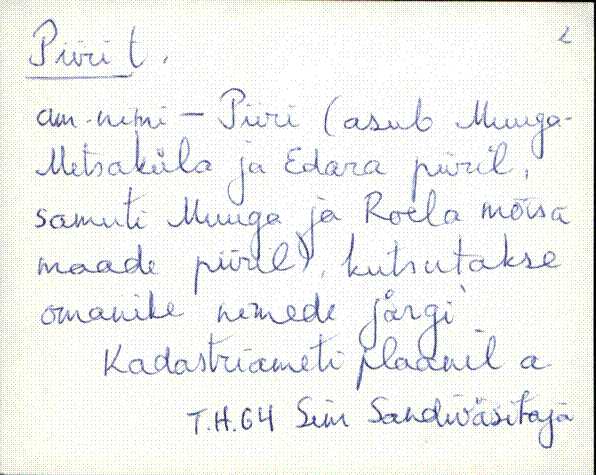 2
Piiri t.
am. nimi – Piiri (asub Muuga-
Metsaküla ja Edara piiril,
samuti Muuga ja Roela mõisa
maade piiril), kutsutakse
omanike nimede järgi
Kadastriameti plaanil a
T.H.64 Sim